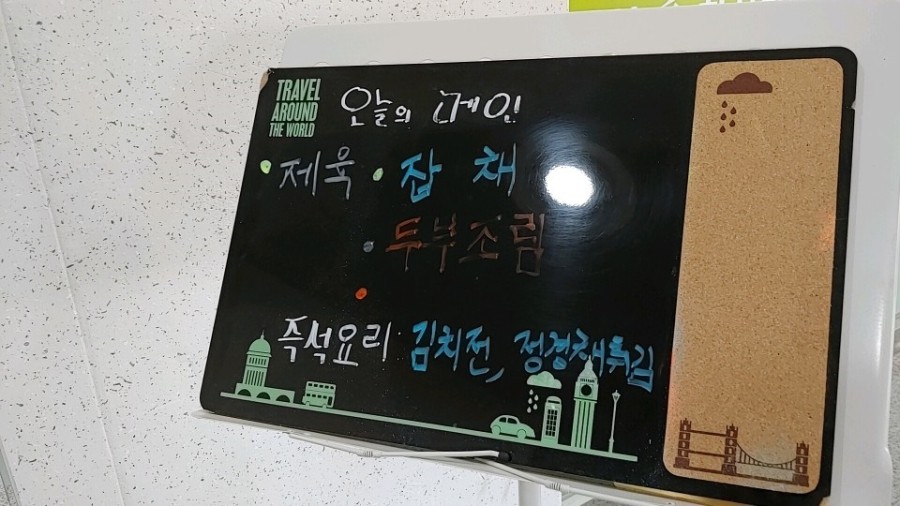 TRAVEL
AROUND
THE WORLD
오늘의 메인
제육 · 잡채
두부조림
즉석요리 김치전, 정경채튀김